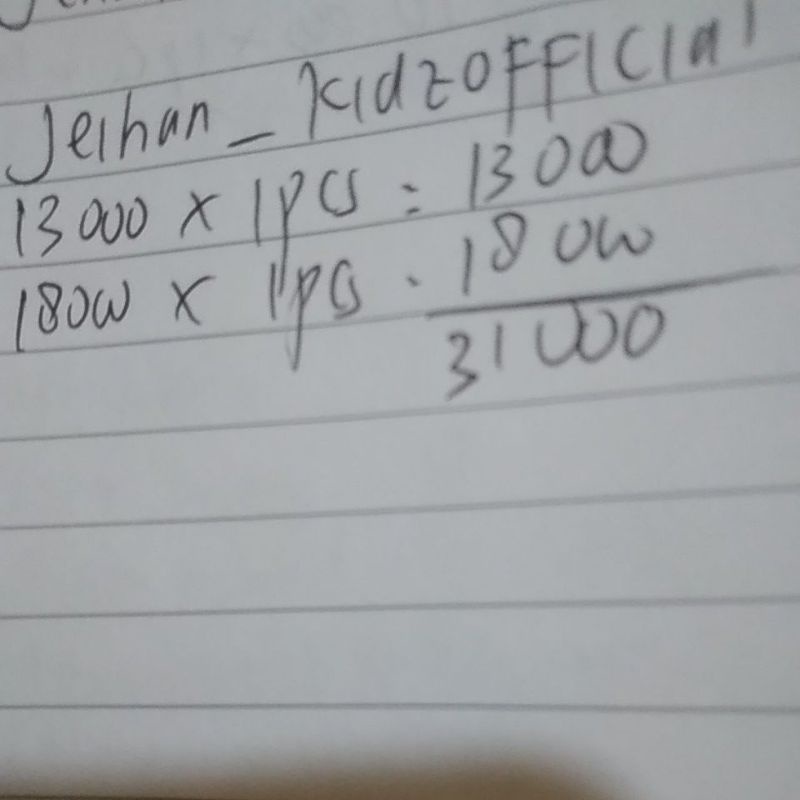 Jeihan_kidzofficial
13000 x 1pcs = 13000
18000 x 1pcs = 18000
31000